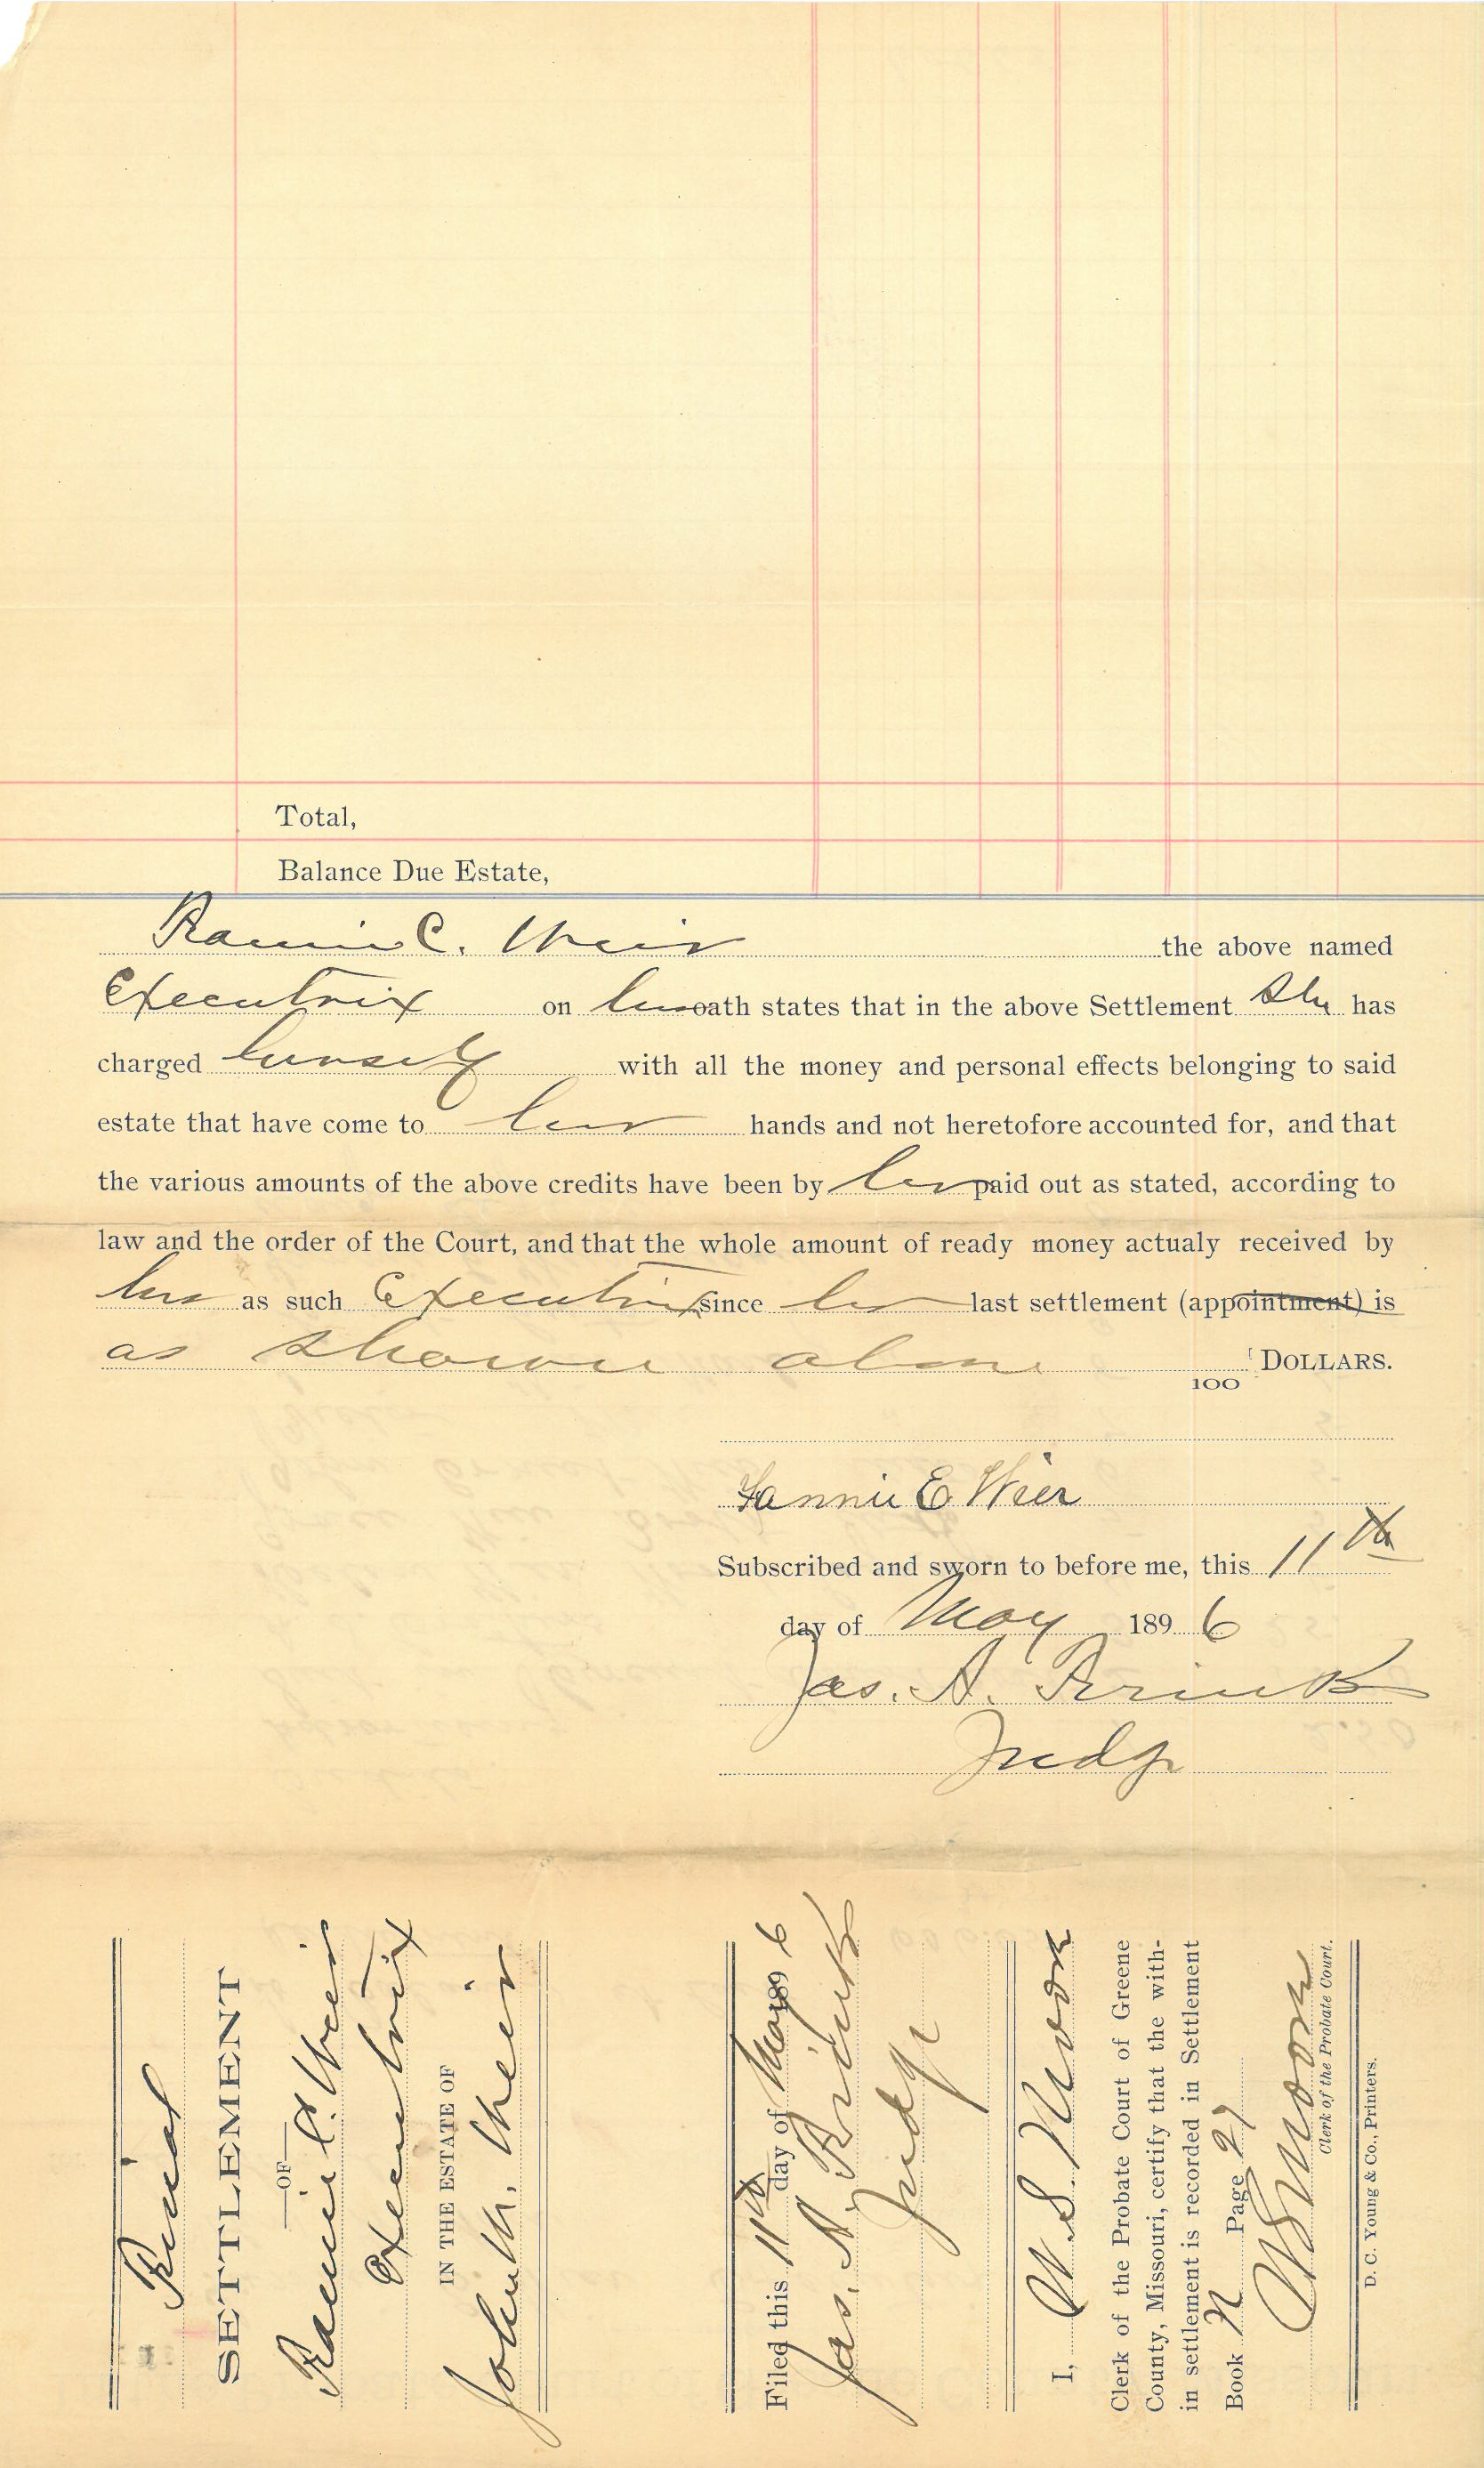 Total,
Balance Due Estate,
Fannie E. Weir the above named
Executrix on her oath states that in the above Settlement She has
charged herself with all the money and personal effects belonging to said
estate that have come to her hands and not heretofore accounted for, and that
the various amounts of the above credits have been by her paid out as stated, according to
law and the order of the Court, and that the whole amount of ready money actualy received by
her as such Executrix since her last settlement (appointment) is
as shown above 100 DOLLARS.
Fannie E Weir
Subscribed and sworn to before me, this 11th
day of May 1896
Jas. A.
Judge
Final
SETTLEMENT
—OF—
Fannie E. Weir
Executrix
IN THE ESTATE OF
John M. Weir
Filed this 11th day of May 1896
Jas. A.
Judge
I, W. S. Moore
Clerk of the Probate Court of Greene
County, Missouri, certify that the with-
in settlement is recorded in Settlement
Book N Page 27
WSMoore
Clerk of the Probate Court.
D. C. Young & Co., Printers.